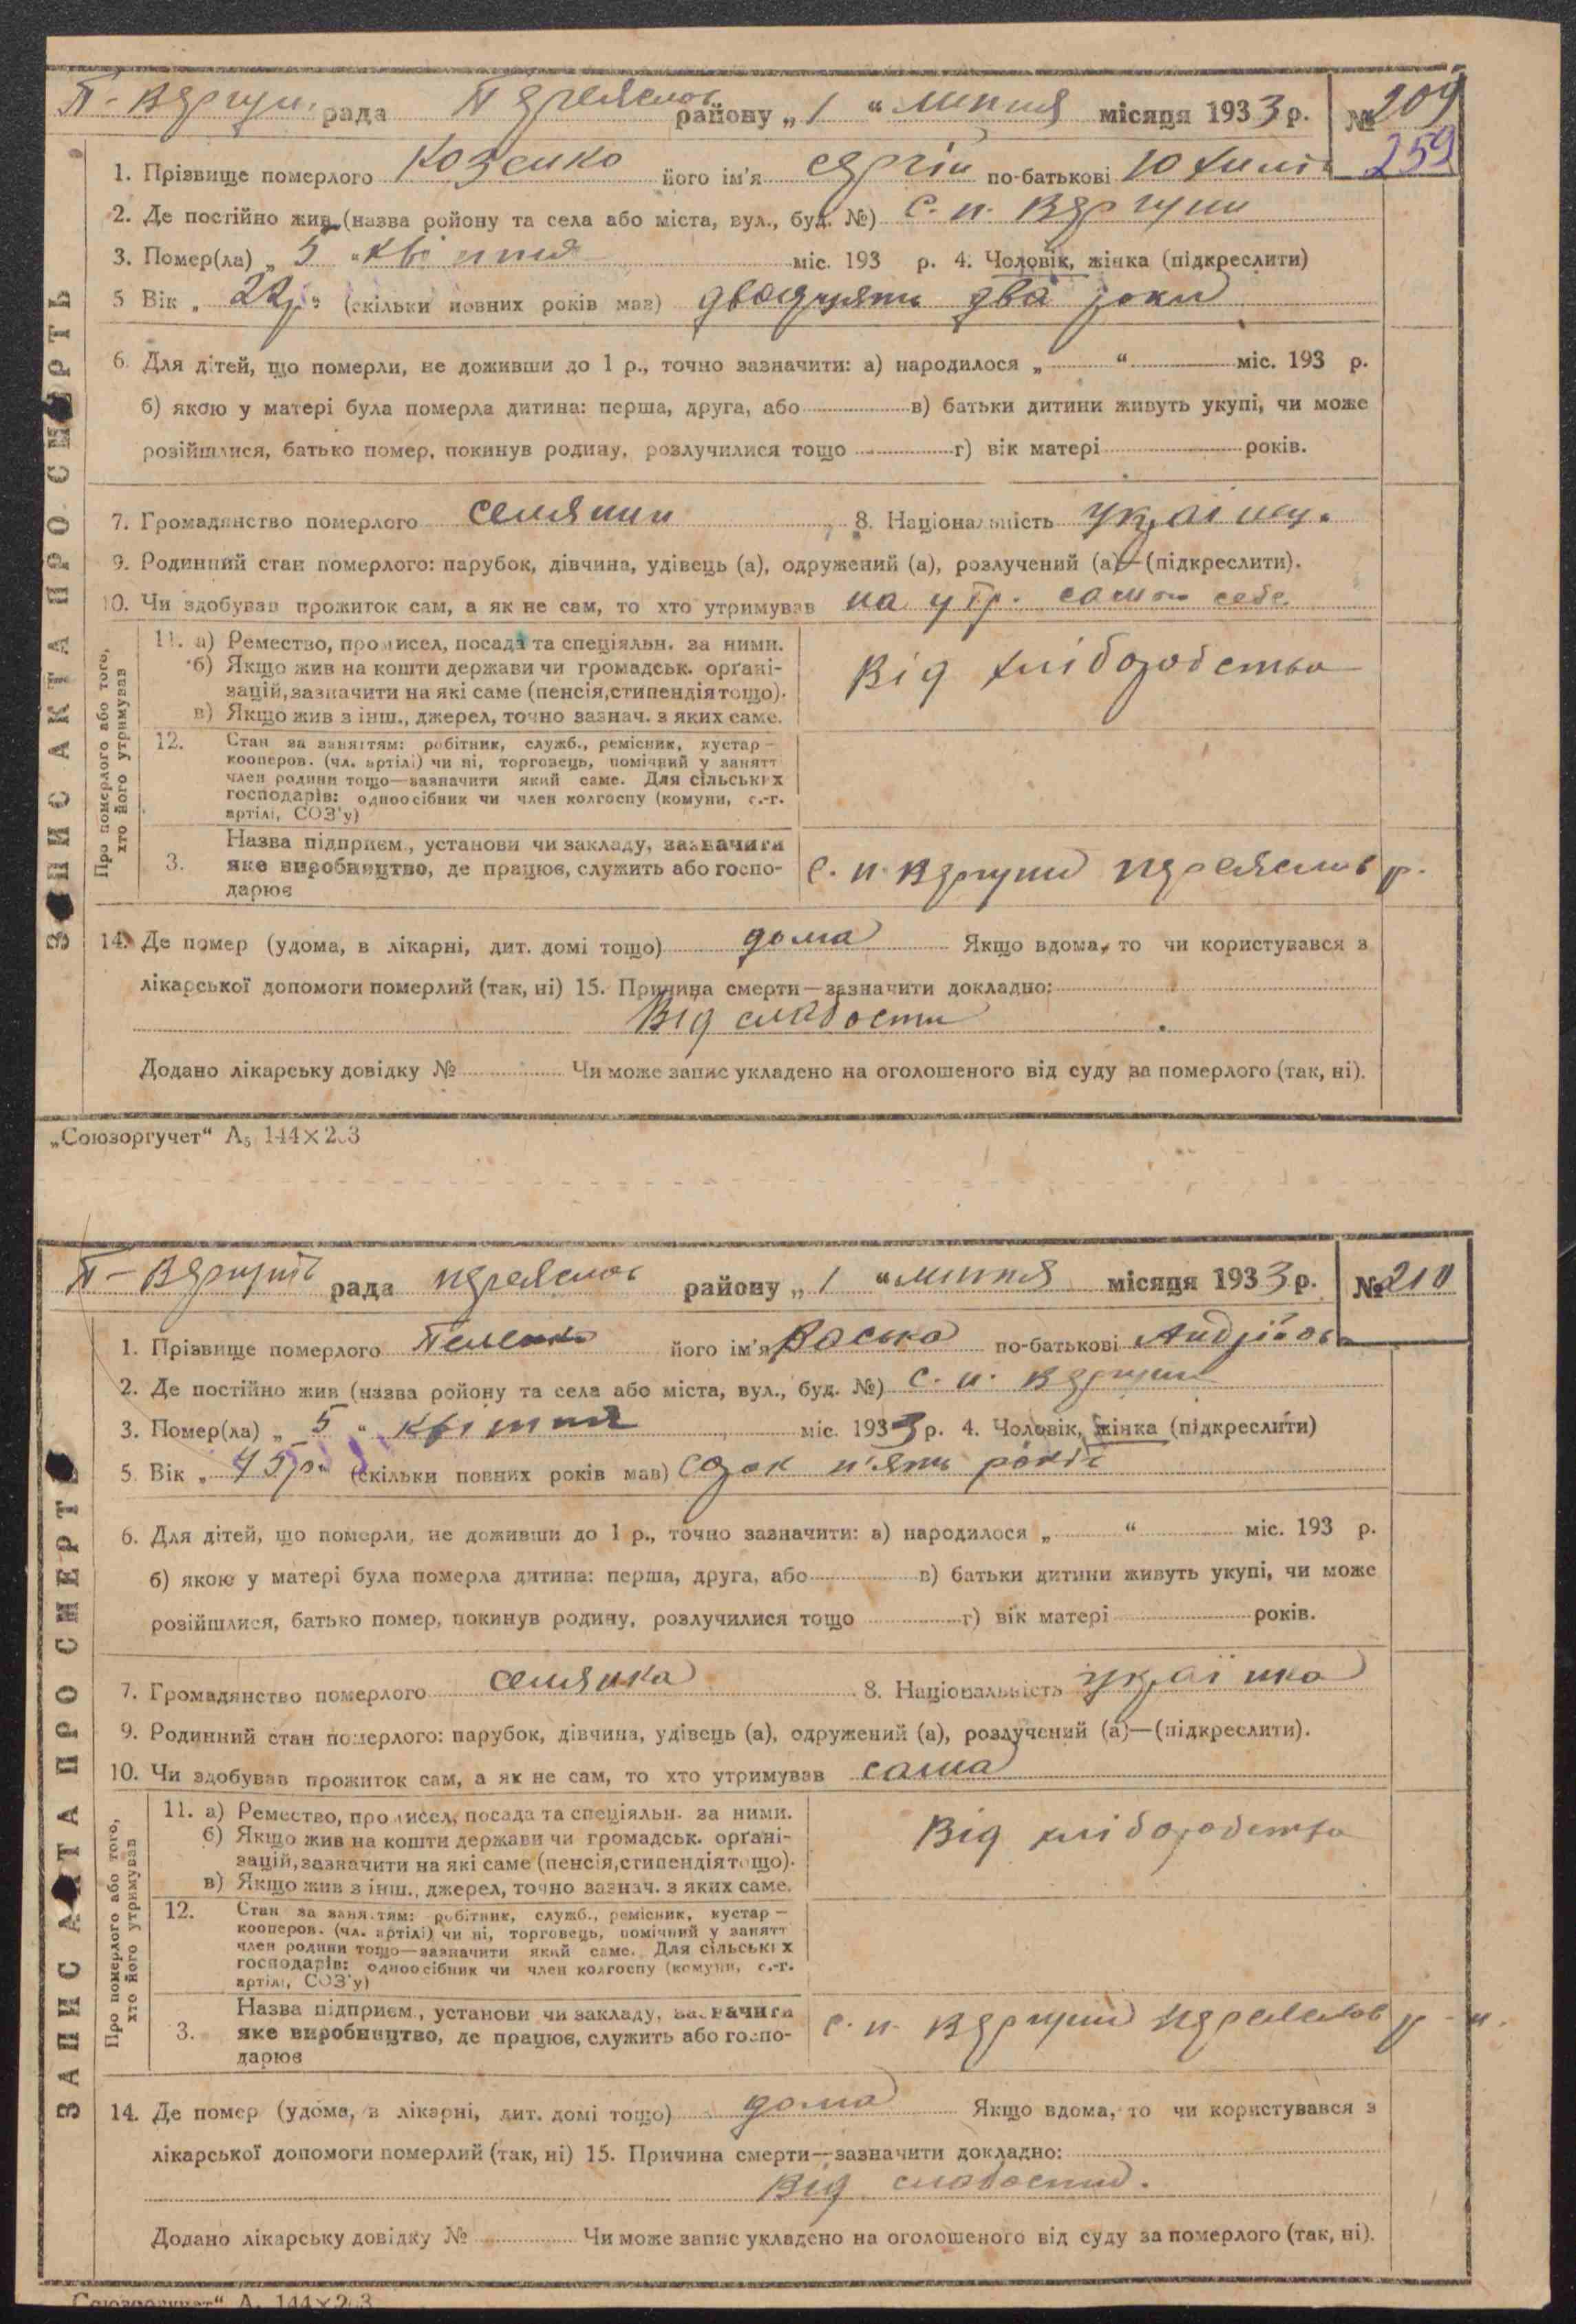 П-Вергун. рада Переяслов району „1 “ липня місяця 1933 р. № 209
259
ЗАПИС АКТА ПРО СМЕРТЬ
1. Прізвище померлого Козенко його ім'я Сергій по-батькові Юхимів
2. Де постійно жив (назва ройону та села або міста, вул., буд. №) С. П. Вергуни
3. Помер(ла) „ 5 “ квітня міс. 193 р. 4. Чоловік, жінка (підкреслити)
5 Вік „ 22р “ (скільки повних років мав) двадцять два роки
6. Для дітей, що померли, не доживши до 1 р., точно зазначити: а) народилося „ “ міс. 193 р.
б) якою у матері була померла дитина: перша, друга, або в) батьки дитини живуть укупі, чи може
розійшлися, батько помер, покинув родину, розлучилися тощо г) вік матері років.
7. Громадянство померлого селянин 8. Національність україн.
9. Родинний стан померлого: парубок, дівчина, удівець (а), одружений (а), розлучений (а)—(підкреслити).
10. Чи здобував прожиток сам, а як не сам, то хто утримував на утр. самого себе
Про померлого або того, хто його утримував
11. а) Ремество, промисел, посада та спеціяльн. за ними.
б) Якщо жив на кошти держави чи громадськ. орґані-
зацій, зазначити на які саме (пенсія, стипендія тощо).
в) Якщо жив з інш., джерел, точно зазнач. з яких саме.
Від хліборобства
12. Стан за заняттям: робітник, служб., ремісник, кустар —
кооперов. (чл. артілі) чи ні, торговець, помічний у занятт
член родини тощо—зазначити який саме. Для сільських
господарів: одноосібник чи член колгоспу (комуни, с.-г.
артілі, СОЗ'у)
3. Назва підприєм., установи чи закладу, зазначити
яке виробництво, де працює, служить або госпо-
дарює
С. П. Вергуни Переяслов р.
14. Де помер (удома, в лікарні, дит. домі тощо) дома Якщо вдома, то чи користувався з
лікарської допомоги померлий (так, ні) 15. Причина смерти—зазначити докладно:
Від слабости
Додано лікарську довідку № Чи може запис укладено на оголошеного від суду за померлого (так, ні).
„Союзоргучет“ А5 144×203
П-Вергунів рада Переяслов району „1 “ липня місяця 1933 р. № 210
ЗАПИС АКТА ПРО СМЕРТЬ
1. Прізвище померлого його ім'я Васька по-батькові Андріїов
2. Де постійно жив (назва ройону та села або міста, вул., буд. №) С. П. Вергуни
3. Помер(ла) „ 5 “ квітня міс. 1933 р. 4. Чоловік, жінка (підкреслити)
5. Вік „ 45р. (скільки повних років мав) сорок п'ять років
6. Для дітей, що померли, не доживши до 1 р., точно зазначити: а) народилося „ “ міс. 193 р.
б) якою у матері була померла дитина: перша, друга, або в) батьки дитини живуть укупі, чи може
розійшлися, батько помер, покинув родину, розлучилися тощо г) вік матері років.
7. Громадянство померлого селянка 8. Національність українка
9. Родинний стан померлого: парубок, дівчина, удівець (а), одружений (а), розлучений (а)—(підкреслити).
10. Чи здобував прожиток сам, а як не сам, то хто утримував сама
Про померлого або того, хто його утримував
11. а) Ремество, промисел, посада та спеціяльн. за ними.
б) Якщо жив на кошти держави чи громадськ. орґані-
зацій, зазначити на які саме (пенсія, стипендія тощо).
в) Якщо жив з інш., джерел, точно зазнач. з яких саме.
Від хліборобства
12. Стан за заняттям: робітник, служб., ремісник, кустар —
кооперов. (чл. артілі) чи ні, торговець, помічний у занятт
член родини тощо—зазначити який саме. Для сільських
господарів: одноосібник чи член колгоспу (комуни, с.-г.
артілі, СОЗ'у)
3. Назва підприєм., установи чи закладу, зазначити
яке виробництво, де працює, служить або госпо-
дарює
С. П. Вергуни Переяслов р-н.
14. Де помер (удома, в лікарні, дит. домі тощо) дома Якщо вдома, то чи користувався з
лікарської допомоги померлий (так, ні) 15. Причина смерти—зазначити докладно:
Від слабости.
Додано лікарську довідку № Чи може запис укладено на оголошеного від суду за померлого (так, ні).
„Союзоргучет“ А. 144×203